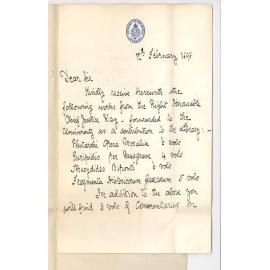 12th February 1894
Dear Sir
Kindly receive herewith the
following works from the Right Honorable
Chief Justice Way - forwarded to the
University as a contribution to the Library :-
Plutarchi Opera Moralia 6 vols
Euripides per Musgrave 4 vols
Thucydides Biponti 6 vols
Fragmenta Historicorum Graecorum 5 vols
In addition to the above you
will find 3 vols of Commentaries on